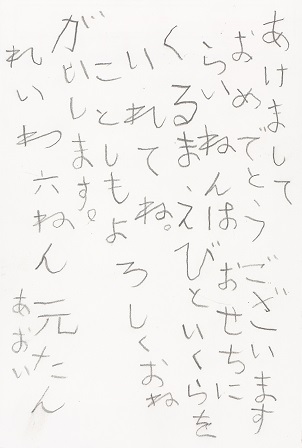 あけまして
おめでとうございます
らいねんは おせちに
くるまえびといくらを
いれてね。
ことしもよろしくおね
がいします。
れいわ六ねん 元たん
あおい